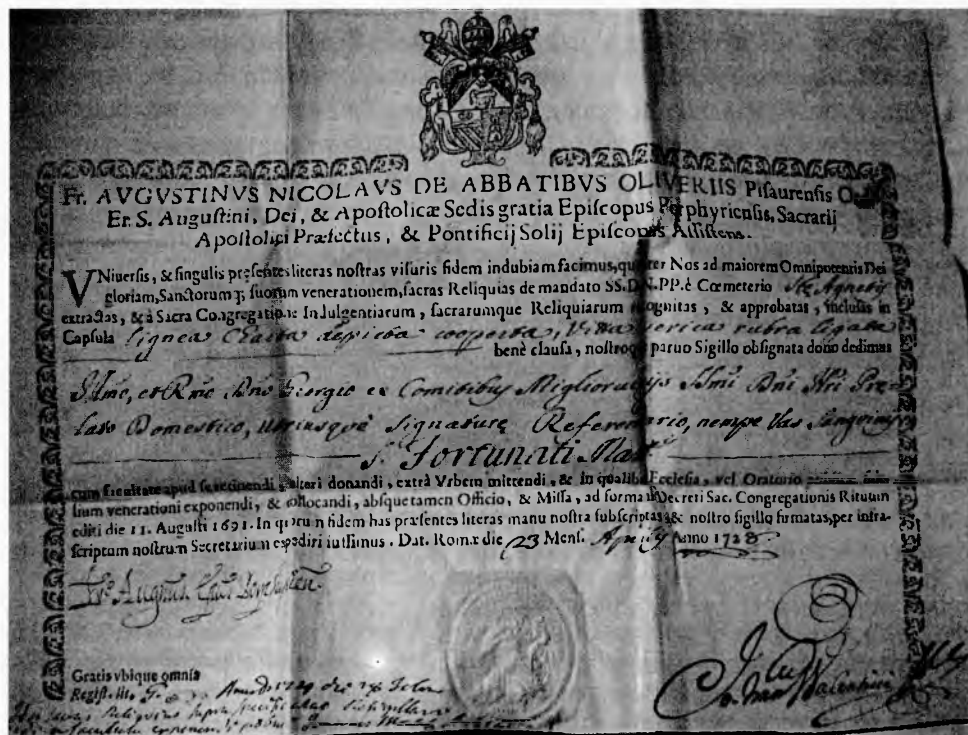 Fr. AVGVSTINVS NICOLAVS DE ABBATIBVS OLIVERIIS Pisaurensis
Er. S. Augustini, Dei, & Apostolicæ Sedis gratia Episcopus Porphyriensis, Sacrarij
Apostolici Præfectus, & Pontificij Solij Episcopus Assistens.
VNiversis, & singulis præsentes literas nostras visuris fidem indubiam facimus, qualiter Nos ad maiorem Omnipotentis Dei
gloriam, Sanctorumq; suorum venerationem, sacras Reliquias de mandato SS. D. N. PP. è Cœmeterio Stæ Agnetis
extractas, & à Sacra Congregatione Indulgentiarum, sacrarumque Reliquiarum recognitas, & approbatas, inclusas in
Capsula lignea Charta depicta cooperta, Vitta serica rubra ligata
benè clausa, nostroque paruo Sigillo obsignata dono dedimus
Illmo, et Rmo Dno Georgio ex Comitibus Ssmi Dni Nri Præ-
lato Domestico, utriusque Signaturæ Referendario, nempe Vas Sanguinis
S. Fortunati Mar
cum facultate apud se retinendi, alteri donandi, extrà Vrbem mittendi, & in qualibet Ecclesia, vel Oratorio
lium venerationi exponendi, & collocandi, absque tamen Officio, & Missa, ad formam Decreti Sac. Congregationis Rituum
editi die 11. Augusti 1691. In quorum fidem has præsentes literas manu nostra subscriptas, & nostro sigillo firmatas, per infra-
scriptum nostrum Secretarium expediri iussimus. Dat. Romæ die 23 Mens. Aprilis Anno 1728
Fr. Augnus
Gratis vbique omnia
Regist. lib. Anno 1729 die
sacras Reliquias supra specificatas